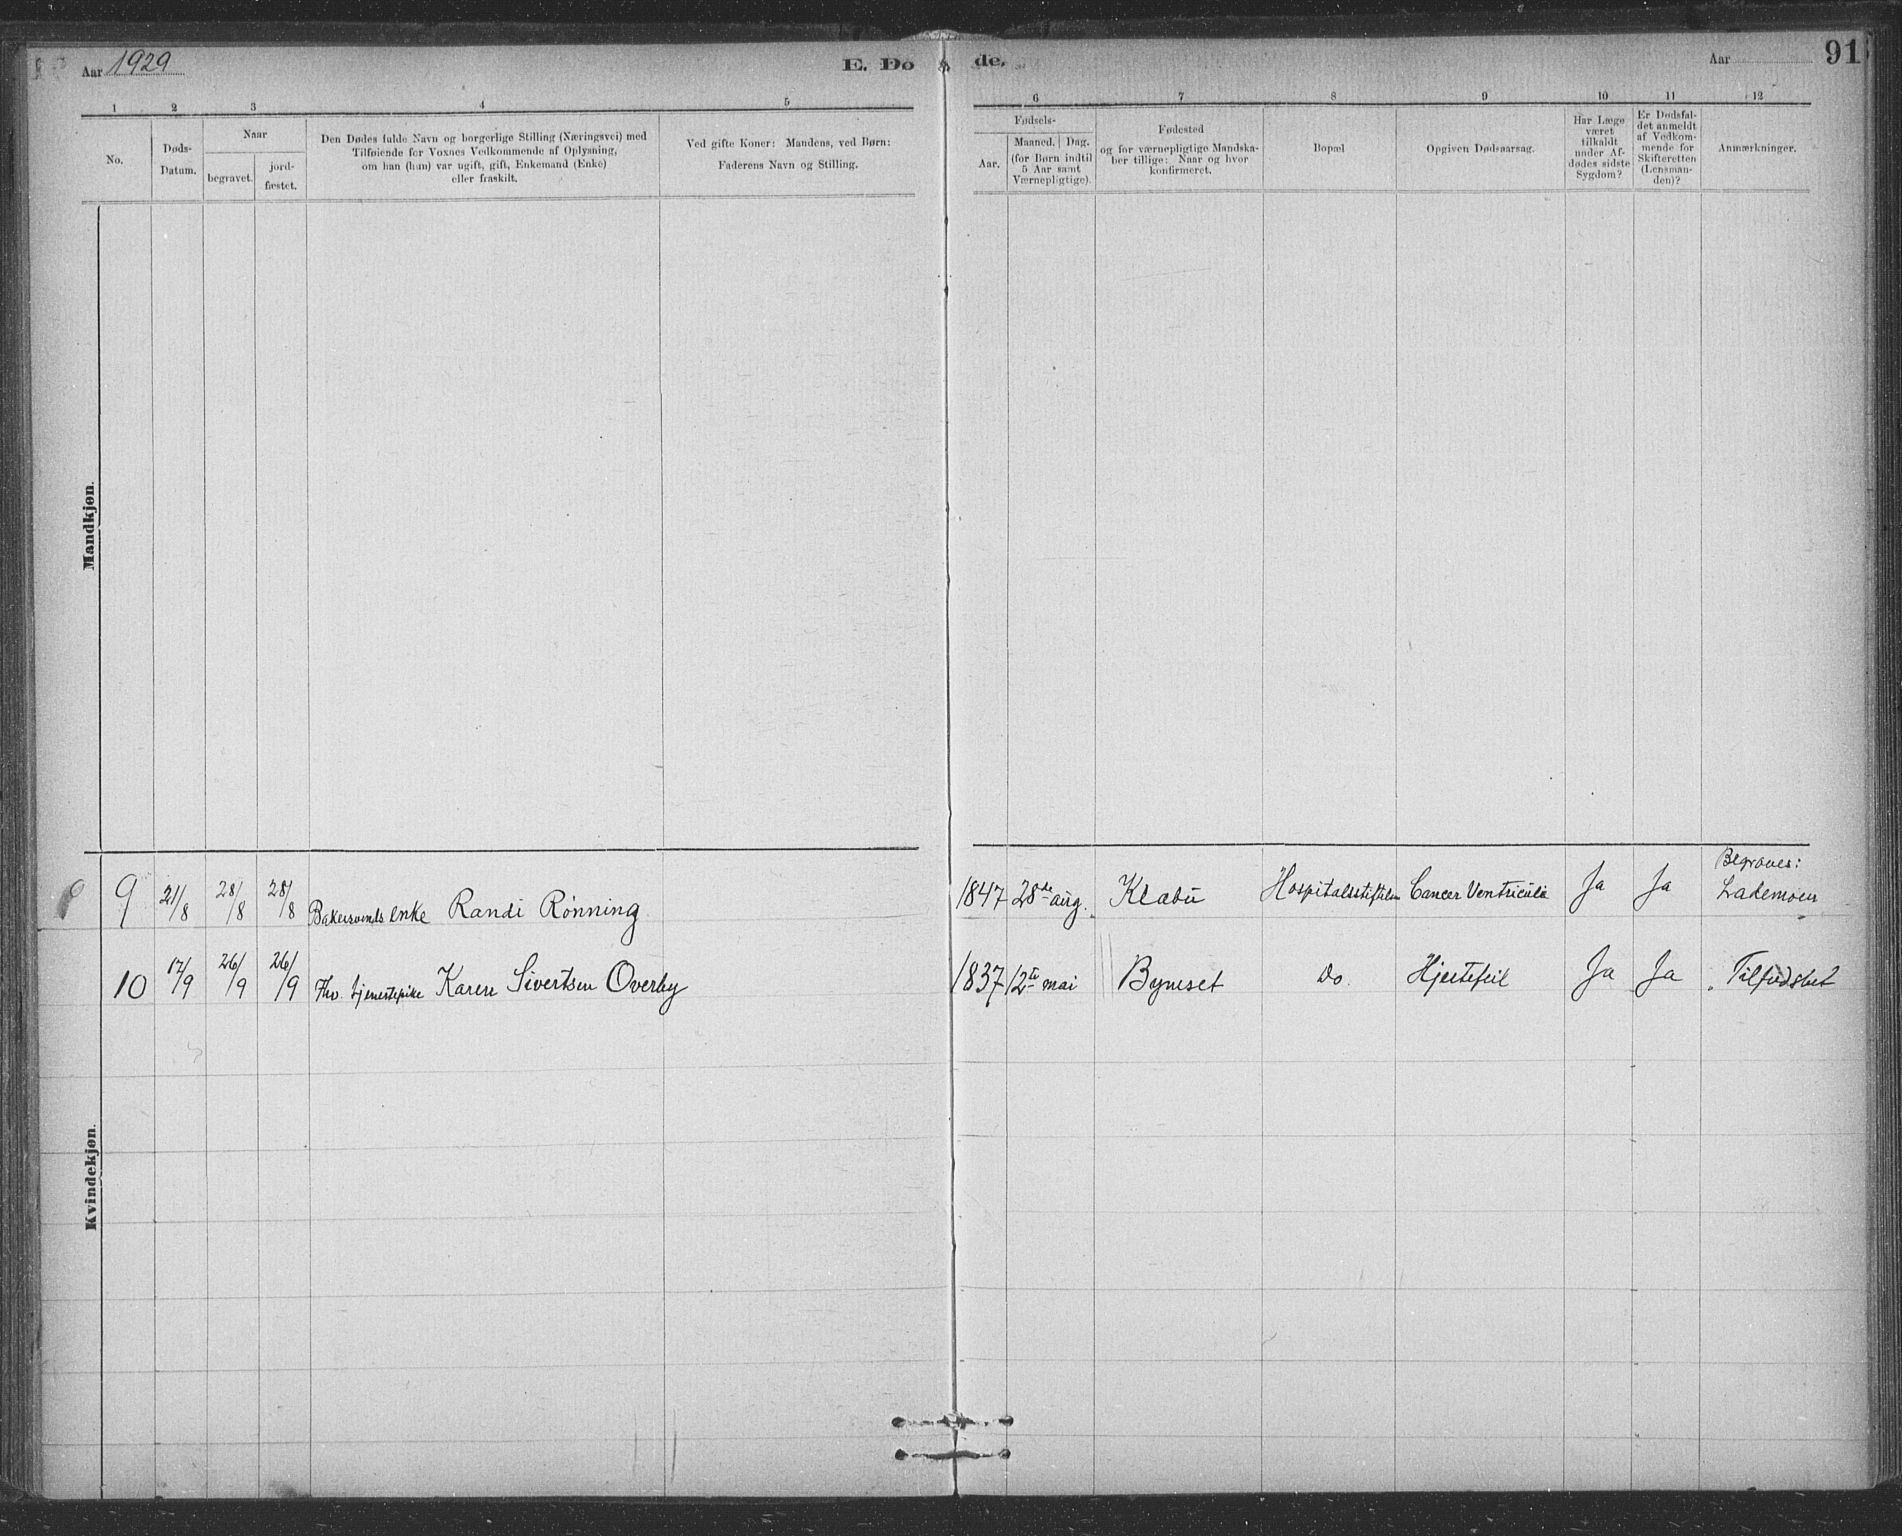 Aar 1929
E. Dø
de.
Aar
91
1 2 3 4 5
6 7 8 9 10 11 12
No.
Døds-
Datum.
Naar
begravet.
jord-
fæstet.
Den Dødes fulde Navn og borgerlige Stilling (Næringsvei) med
Tilføiende for Voxnes Vedkommende af Oplysning,
om han (hun) var ugift, gift, Enkemand (Enke)
eller fraskilt.
Ved gifte Koner: Mandens, ved Børn:
Faderens Navn og Stilling.
Fødsels-
Aar.
Maaned. Dag.
(for Børn indtil
5 Aar samt
Værnepligtige).
Fødested
og for værnepligtige Mandska-
ber tillige: Naar og hvor
konfirmeret.
Bopæl
Opgiven Dødsaarsag.
Har Læge
været
tilkaldt
under Af-
dødes sidste
Sygdom?
Er Dødsfal-
det anmeldt
af Vedkom-
mende for
Skifteretten
(Lensman-
den)?
Anmærkninger.
Mandkjøn.
Kvindekjøn.
Begraves:
9 21/8 28/8 28/8 Bakersvends enke Randi Rønning 1847 28de aug. Klæbu Hospitalsstiftelsen Cancer Ventriculi Ja Ja Lademoen
10 17/9 26/9 26/9 Fhv. tjenestepike Karen Sivertsen Overby 1837 12te mai Byneset Do. Hjertefeil Ja Ja " Tilfredshet